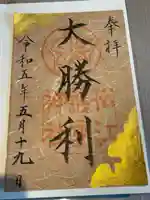 奉拝
大勝利
令和五年五月十九日